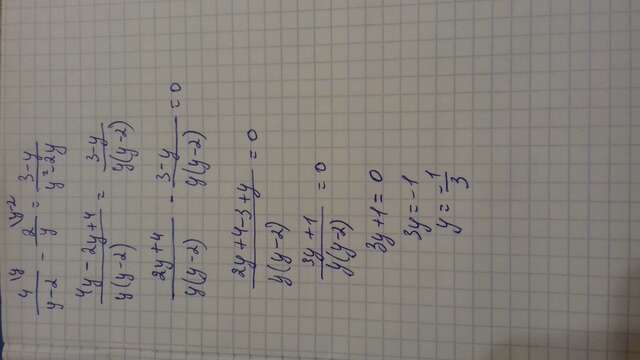 4\y / (y-2) - 2\y-2 / y = (3-y) / (y²-2y)
(4y-2y+4) / (y(y-2)) = (3-y) / (y(y-2))
(2y+4) / (y(y-2)) - (3-y) / (y(y-2)) = 0
(2y+4-3+y) / (y(y-2)) = 0
(3y+1) / (y(y-2)) = 0
3y+1=0
3y=-1
y = -1 / 3